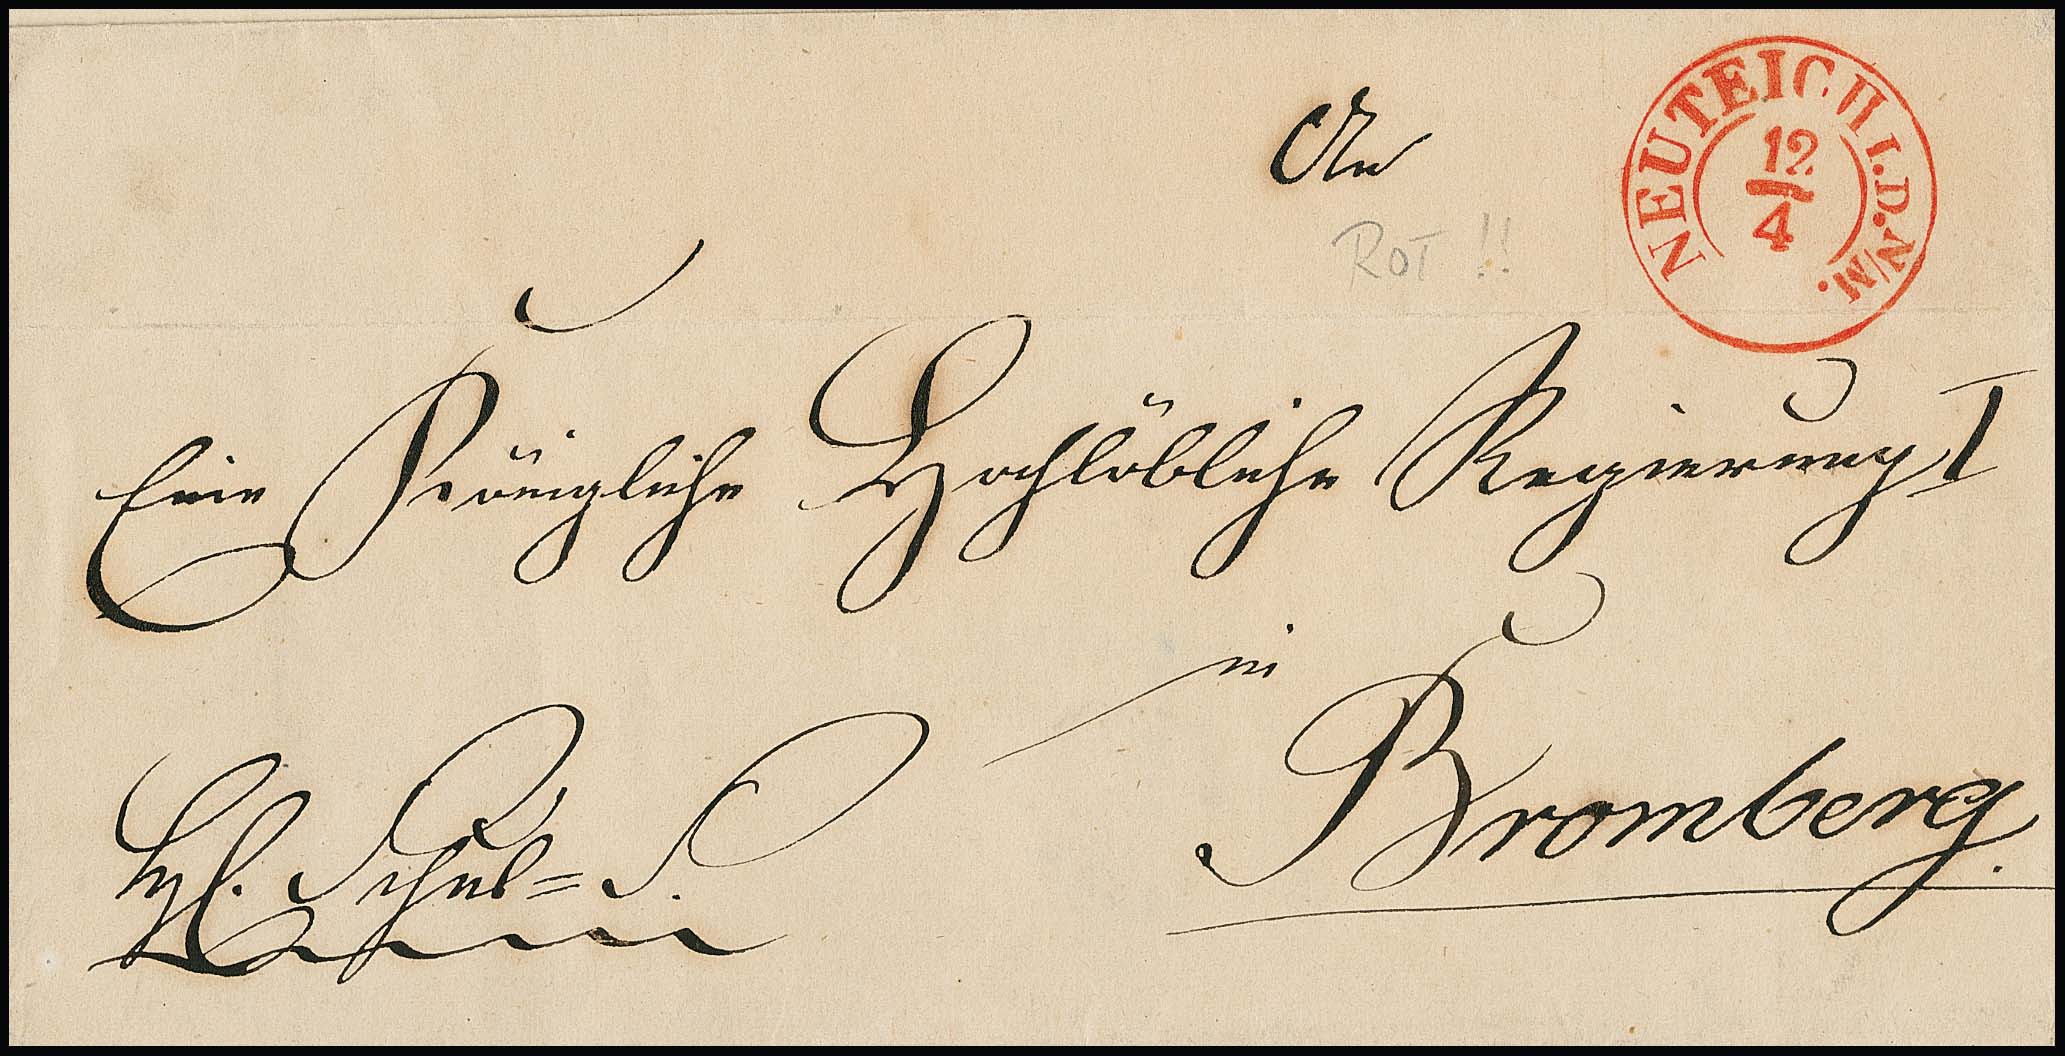 NEUTEICH I.D.N/M.
12
4
An
ROT !!
Eine Königliche Hochlöbliche Regierung I
in
Bromberg.
Hgl. Schul=S.